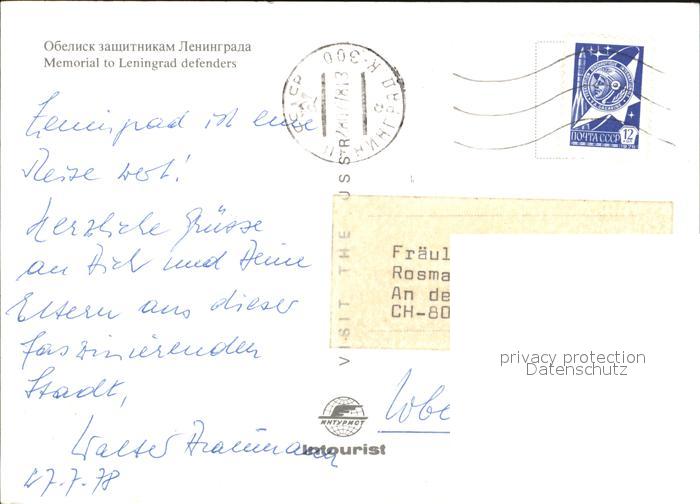 Обелиск защитникам Ленинграда
Memorial to Leningrad defenders
Leningrad ist eine
Reise wert!
Herzliche Grüsse
an Dich und Deine
Eltern aus dieser
faszinierenden
Stadt,
Walter
27.7.78
VISIT THE USSR
ПОЧТА СССР
12
Fräul
Rosma
An de
CH-80
privacy protection
Datenschutz
ИНТУРИСТ
Intourist